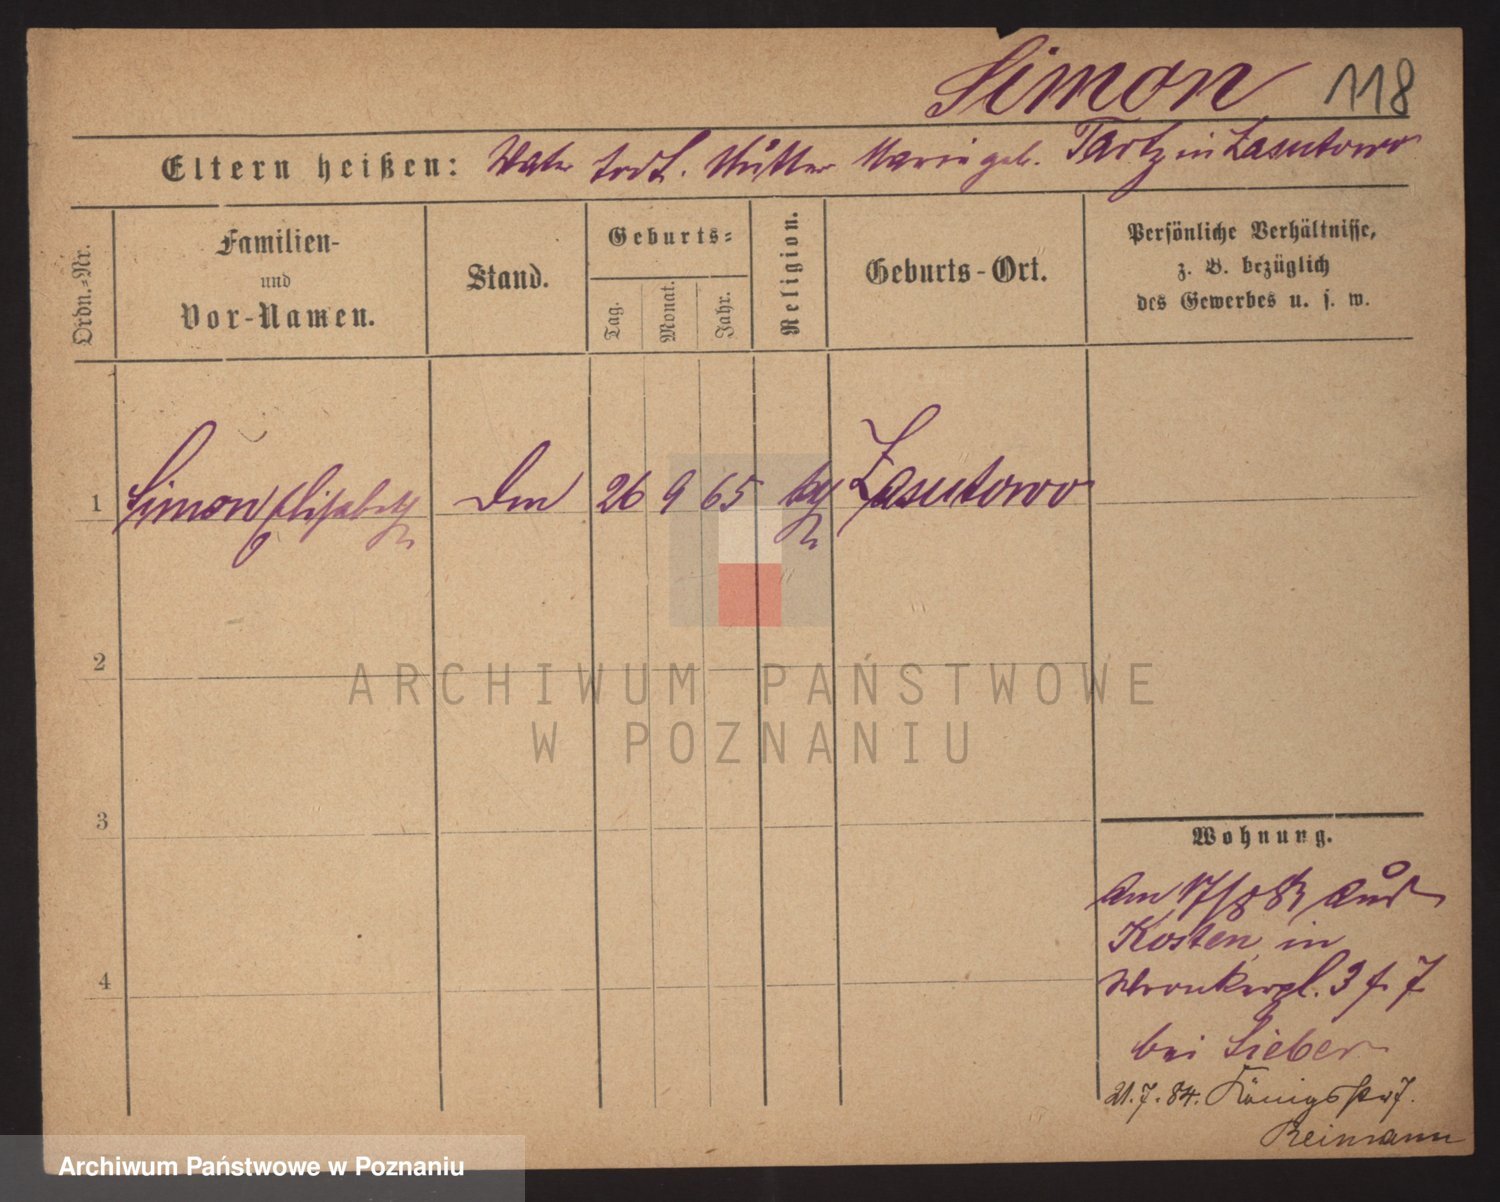 Simon 118
Eltern heißen: Vater todt. Mutter Marie geb. Tartz in Zasutowo
Ordn.-Nr.
Familien-
und
Vor-Namen.
Stand.
Geburts-
Tag.
Monat.
Jahr.
Religion.
Geburts-Ort.
Persönliche Verhältnisse,
z. B. bezüglich
des Gewerbes u. s. w.
1 Simon Elisabeth 26 9 65 Zasutowo
2
3
4
Wohnung.
Am 17/8 83 aus
Kosten in
Wronkerpl. 3 f. 7
bei Sieber
21.7.84. Königsstr 7.
Reimann
ARCHIWUM PAŃSTWOWE
W POZNANIU
Archiwum Państwowe w Poznaniu